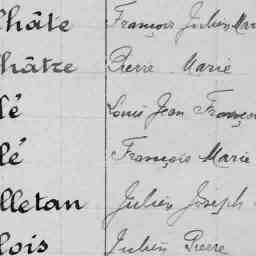 hâte François Julien Mar
hâtre Pierre Marie
lé Louis Jean François
lé François Marie
lletan Julien Joseph
lois Julien Pierre